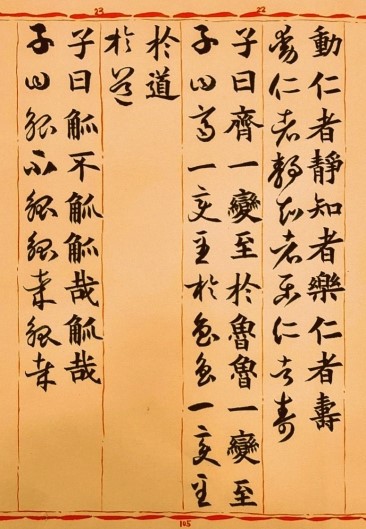 22
動仁者靜知者樂仁者壽
動仁者靜知者樂仁者壽
子曰齊一變至於魯魯一變至
子曰齊一變至於魯魯一變至
於道
於道
23
子曰觚不觚觚哉觚哉
子曰觚不觚觚哉觚哉
105